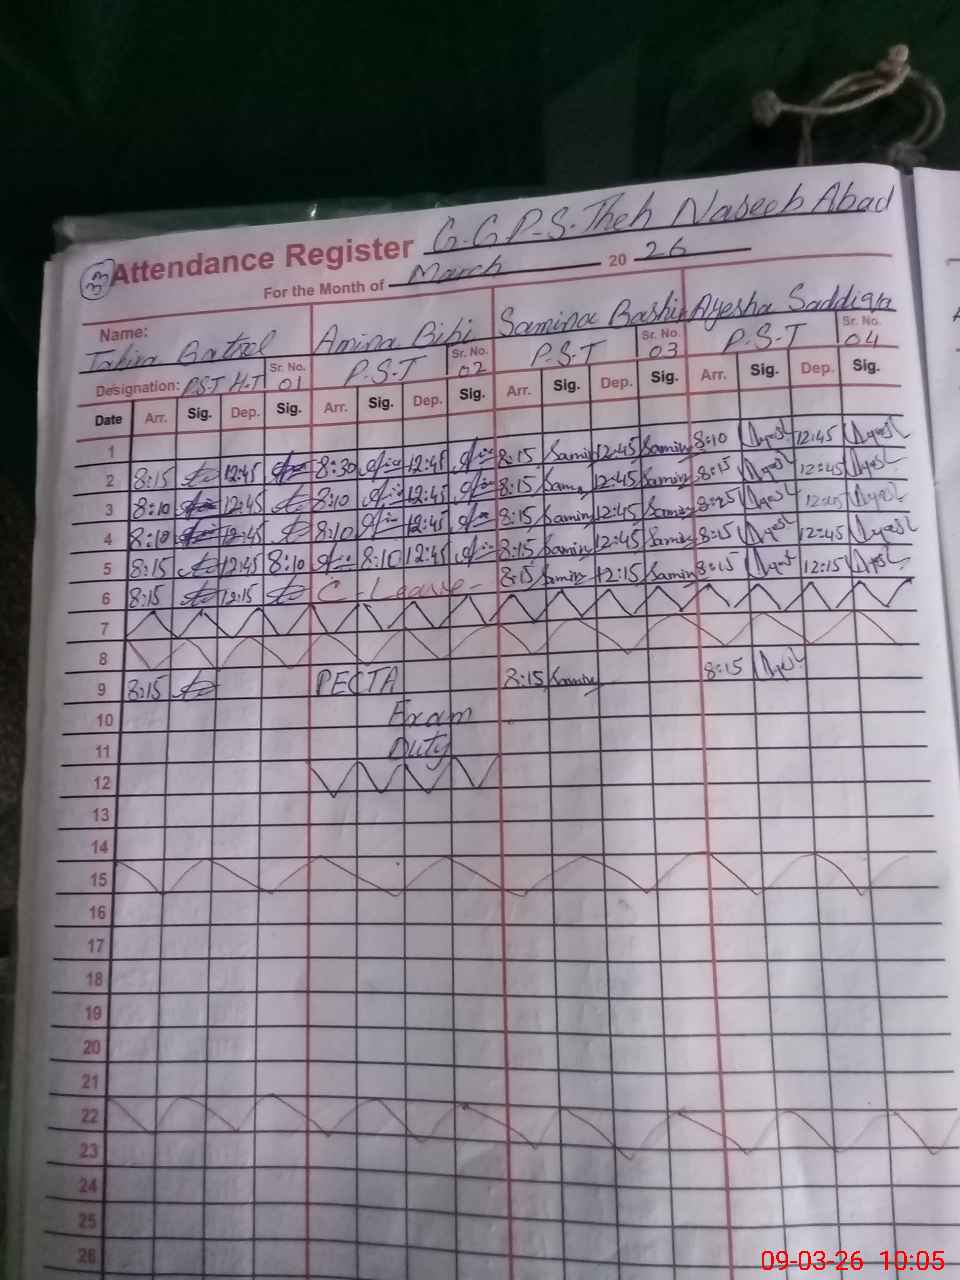 33 Attendance Register G.G.P.S. Theh Naseeb Abad
For the Month of March 20 26
Name: Amina Bibi Samina Bashir Ayesha Saddiqa
Designation: P.S.T H.T Sr. No. 01 P.S.T Sr. No. 02 P.S.T Sr. No. 03 P.S.T Sr. No. 04
Date Arr. Sig. Dep. Sig. Arr. Sig. Dep. Sig. Arr. Sig. Dep. Sig. Arr. Sig. Dep. Sig.
1
2 8:15 12:45 8:30 12:45 8:15 Samina 12:45 Samina 8:10 12:45
3 8:10 12:45 8:10 12:45 8:15 Samina 12:45 Samina 8:15 12:45
4 8:10 12:45 8:10 12:45 8:15 Samina 12:45 Samina 8:25 12:45
5 8:15 12:45 8:10 8:10 12:45 8:15 Samina 12:45 Samina 8:15 12:45
6 8:15 12:15 C-Leave- 8:15 Samina 12:15 Samina 8:15 12:15
7
8
9 8:15 PECTA 8:15 Samina 8:15
10 Exam
11 Duty
12
13
14
15
16
17
18
19
20
21
22
23
24
25
26
09-03-26 10:05